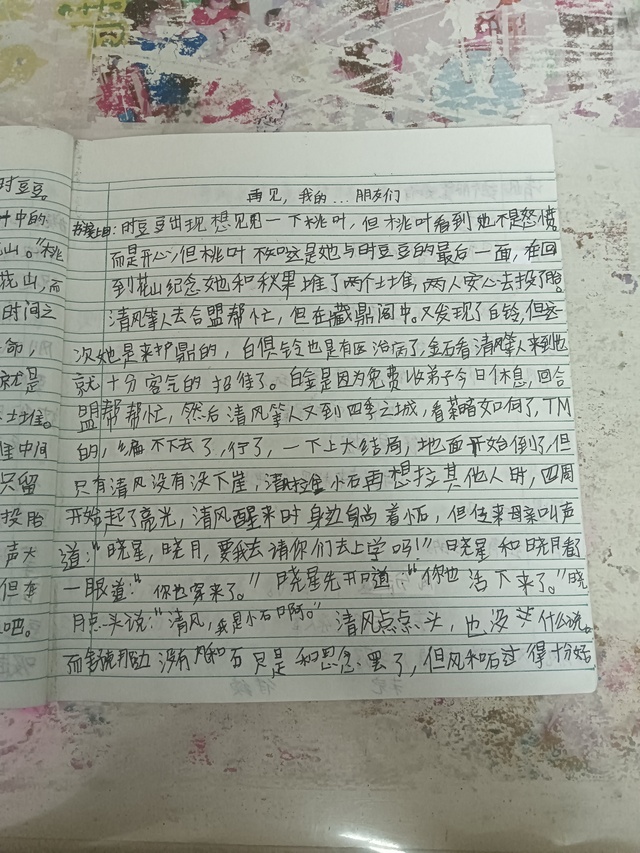 时豆豆。
叶中的
山。"桃
花山，而
时间之
命，
就是
土堆。
中间
只留
投胎
声大
但在
吧。
再见，我的…朋友们
书接上回：时豆豆出现想见见一下桃叶，但桃叶看到她不是怒愤
而是开心，但桃叶不知这是她与时豆豆的最后一面，在回
到花山纪念她和秋果堆了两个土堆，两人安心去投了胎。
清风等人去合盟帮忙，但在藏鼎阁中。又发现了白铃，但这一
次她是来护鼎的，白俱铃也是有医治病了，金石看清风等人来到也
就十分客气的招待了。白金是因为免费收弟子今日休息，回合
盟帮帮忙，然后清风等人又到四季之城，看菜暗如何了，TM
的，编不下去了，行了，一下上大结局，地面开始倒了，但
只有清风没有没下崖，清风拉金小石再想拉其他人时，四周
开始起了亮光，清风醒来时身边自尚着小石，但传来母亲叫声
道："晓星，晓月，要我去请你们去上学吗！"晓星和晓月看
一眼道："你也穿来了。"晓星先开口道："你也活下来了。"晓
月点头说："清风，我是小石啊。"清风点点头，也没什么说。
而没有风和石只是和思念罢了，但风和石过得十分好